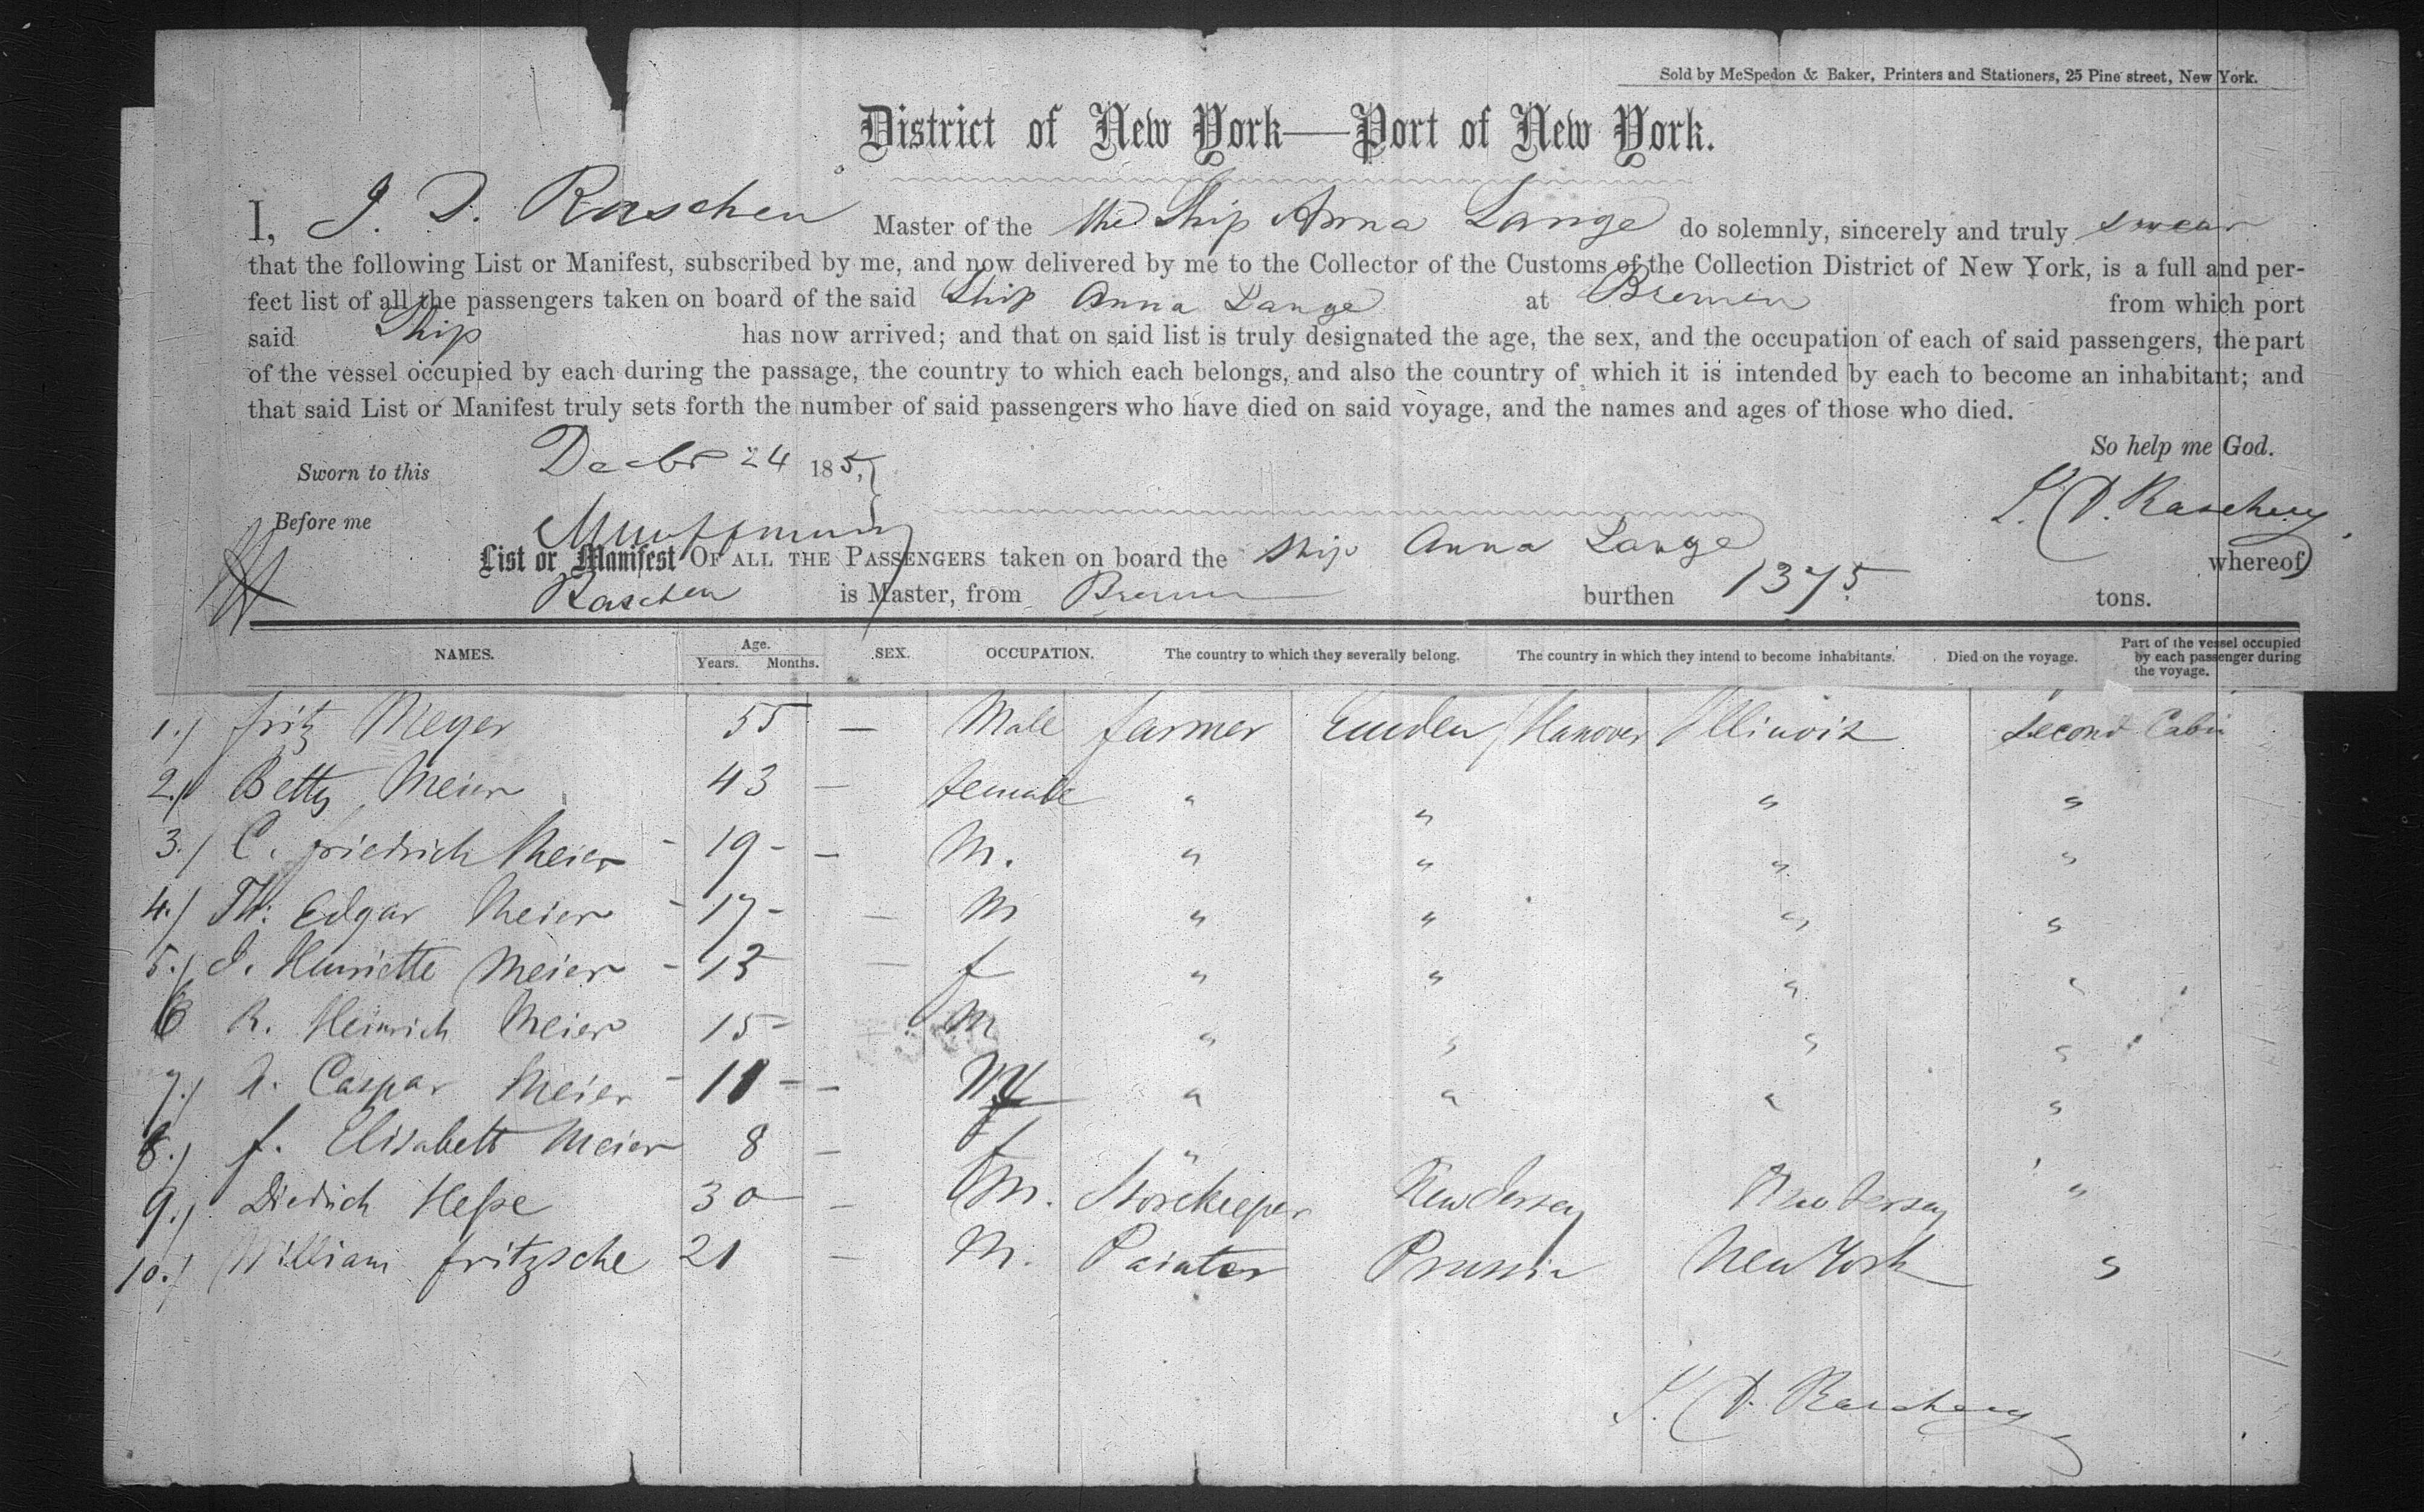 Sold by McSpedon & Baker, Printers and Stationers, 25 Pine street, New York.
District of New York—Port of New York.
I, J. D. Raschen Master of the the Ship Anna Lange do solemnly, sincerely and truly swear
that the following List or Manifest, subscribed by me, and now delivered by me to the Collector of the Customs of the Collection District of New York, is a full and per-
fect list of all the passengers taken on board of the said Ship Anna Lange at Bremen from which port
said Ship has now arrived; and that on said list is truly designated the age, the sex, and the occupation of each of said passengers, the part
of the vessel occupied by each during the passage, the country to which each belongs, and also the country of which it is intended by each to become an inhabitant; and
that said List or Manifest truly sets forth the number of said passengers who have died on said voyage, and the names and ages of those who died.
So help me God.
Sworn to this Decbr 24 185
J. D. Raschen
Before me
List or Manifest OF ALL THE PASSENGERS taken on board the ship Anna Lange whereof
Raschen is Master, from Bremen burthen 1375 tons.
NAMES. Age. Years. Months. SEX. OCCUPATION. The country to which they severally belong. The country in which they intend to become inhabitants. Died on the voyage. Part of the vessel occupied by each passenger during the voyage.
1.) fritz Meyer 55 — Male farmer Emden / Hanover Illinois second Cabin
2.) Betty Meier 43 — female " " " "
3.) C. friedrich Meier - 19 - — M. " " " "
4.) Th: Edgar Meier - 17 - — M " " " "
5.) J. Henriette Meier - 13 — f " " " "
6 R. Heinrich Meier 15 - M " " " "
7.) Caspar Meier - 11 - — M " " " "
8.) f. Elisabeth Meier 8 — f "
9.) Diedrich Heße 30 — M. Storekeeper New Jersey New Jersey "
10.) William fritzsche 21 — M. Painter Prussia New York "
J. D. Raschen